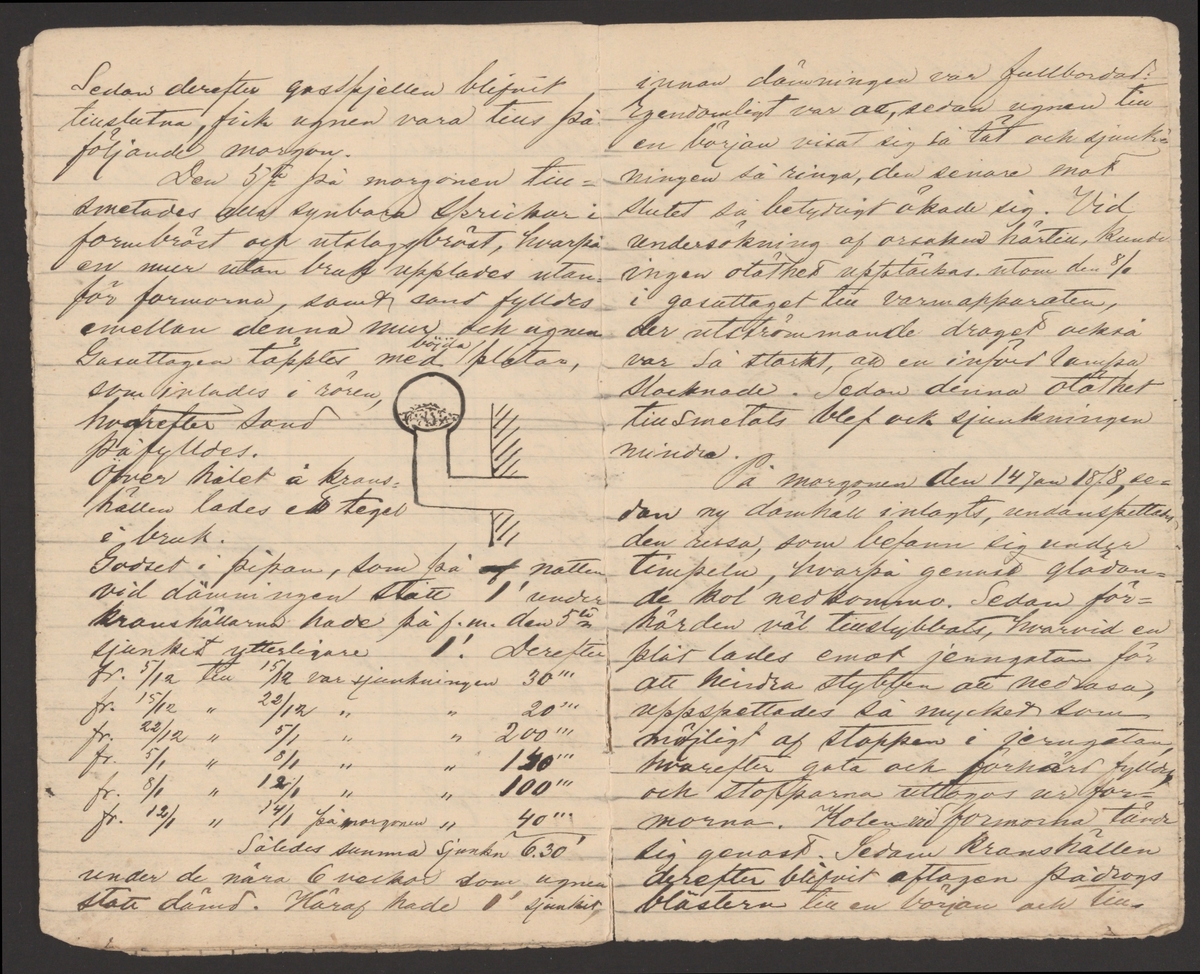 Sedan derefter gasspjellen blifvit
tillslutna, fick ugnen vara tills på
följande morgon.
Den 5te på morgonen till=
smetades alla synbara sprickor i
formbröst och utslagsbröst, hvarpå
en mur utan bruk upplades utan=
för formorna, samt sand fylldes
emellan denna mur och ugnen
Gasuttagen täpptes med böjda plåtar,
som inlades i rören,
hvarefter sand
påfylldes.
Öfver hålet å krans=
hällen lades ett tegel
i bruk.
Godset i pipan, som på natten
vid dämningen stått 1' under
kranshällarna hade på f.m. den 5te
sjunkit ytterligare 1'. Derefter
fr. 5/12 till 15/12 var sjunkningen 30'''
fr. 15/12 " 22/12 " " 20'''
fr. 22/12 " 5/1 " " 200'''
fr. 5/1 " 8/1 " "
fr. 8/1 " 12/1 " " 100'''
fr. 12/1 " 14/1 på morgonen " 40'''
Således summa sjunkn 6.30'
under de nära 6 veckor som ugnen
stått dämd. Häraf hade 1' sjunkit
innan dämningen var fullbordad.
Egendomligt var att, sedan ugnen till
en början visat sig så tät och sjunk=
ningen så ringa, den senare mot
slutet så betydligt ökade sig. Vid
undersökning af orsaken härtill, kunde
ingen otäthet upptäckas utom den 8/1
i gasuttaget till varmapparaten,
der utströmmande draget också
var så starkt, att en införd lampa
slocknade. Sedan denna otäthet
tillsmetats blef ock sjunkningen
mindre.
På morgonen den 14 Jan 1878, se=
dan ny dämhäll inlagts, undanspettades
den ressa, som befann sig under
timpeln, hvarpå genast glödan=
de kol nedkommo. Sedan för=
härden väl tillstybbats, hvarvid en
plåt lades emot jerngatan för
att hindra stybben att nedrasa,
uppspettades så mycket som
möjligt af stoppen i jerngatan,
hvarefter gata och förhärd fylldes
och stopparna uttogos ur for=
morna. Kolen vid formorna tände
sig genast. Sedan kranshällen
derefter blifvit aftagen pådrogs
blästern till en början och till=